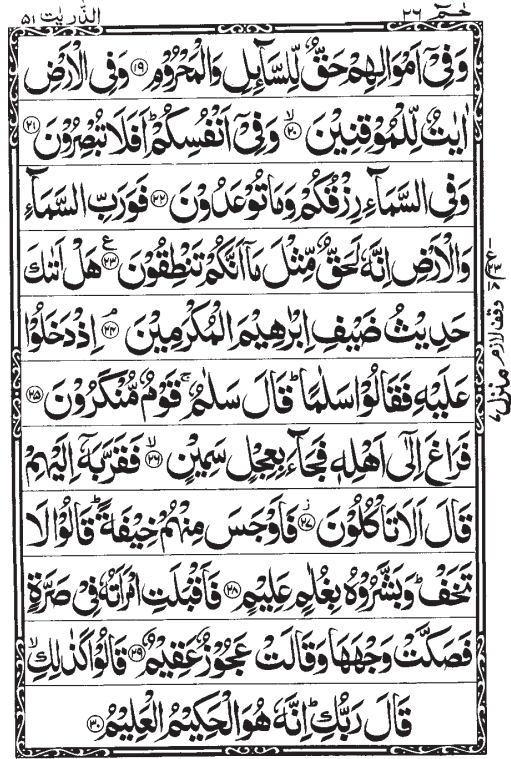 حٰمٓ ٢٦
الذّٰرِیٰت ٥١
وَفِیْۤ اَمْوَالِهِمْ حَقٌّ لِّلسَّآىِٕلِ وَالْمَحْرُوْمِ ﴿١٩﴾ وَفِی الْاَرْضِ
اٰیٰتٌ لِّلْمُوْقِنِیْنَ ﴿٢٠﴾ۙ وَفِیْۤ اَنْفُسِكُمْ ؕ اَفَلَا تُبْصِرُوْنَ ﴿٢١﴾
وَفِی السَّمَآءِ رِزْقُكُمْ وَمَا تُوْعَدُوْنَ ﴿٢٢﴾ فَوَرَبِّ السَّمَآءِ
وَالْاَرْضِ اِنَّهٗ لَحَقٌّ مِّثْلَ مَاۤ اَنَّكُمْ تَنْطِقُوْنَ ﴿٢٣﴾ۧ هَلْ اَتٰىكَ
حَدِیْثُ ضَیْفِ اِبْرٰهِیْمَ الْمُكْرَمِیْنَ ﴿٢٤﴾ۘ اِذْ دَخَلُوْا
عَلَیْهِ فَقَالُوْا سَلٰمًا ؕ قَالَ سَلٰمٌ ۚ قَوْمٌ مُّنْكَرُوْنَ ﴿٢٥﴾
فَرَاغَ اِلٰۤی اَهْلِهٖ فَجَآءَ بِعِجْلٍ سَمِیْنٍ ﴿٢٦﴾ۙ فَقَرَّبَهٗۤ اِلَیْهِمْ
قَالَ اَلَا تَاْكُلُوْنَ ﴿٢٧﴾ؗ فَاَوْجَسَ مِنْهُمْ خِیْفَةً ؕ قَالُوْا لَا
تَخَفْ ؕ وَبَشَّرُوْهُ بِغُلٰمٍ عَلِیْمٍ ﴿٢٨﴾ فَاَقْبَلَتِ امْرَاَتُهٗ فِیْ صَرَّةٍ
فَصَكَّتْ وَجْهَهَا وَقَالَتْ عَجُوْزٌ عَقِیْمٌ ﴿٢٩﴾ قَالُوْا كَذٰلِكِ ۙ
قَالَ رَبُّكِ ؕ اِنَّهٗ هُوَ الْحَكِیْمُ الْعَلِیْمُ ﴿٣٠﴾
وقف لازم
منزل ٧